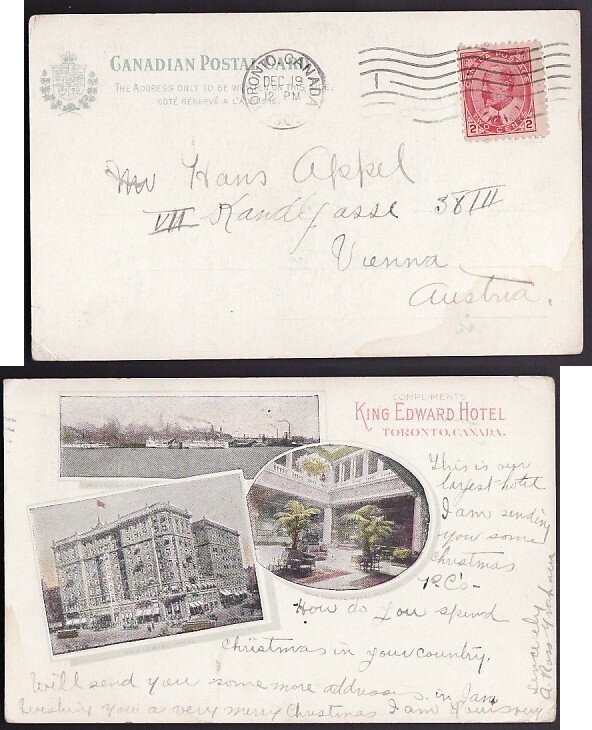 CANADIAN POSTAL CARD
THE ADDRESS ONLY TO BE WRITTEN ON THIS SIDE.
CÔTÉ RÉSERVÉ À L'ADRESSE
TORONTO, CANADA
DEC 19
12 PM
1
CANADA POSTAGE
2 2
TWO CENTS
Mr Hans Appel
VII Kandlgasse 38/II
Vienna
Austria.
COMPLIMENTS
KING EDWARD HOTEL
TORONTO, CANADA.
This is our
largest hotel
I am sending
you some
Christmas
P.C's-
How do you spend
Christmas in your country.
Will send you some more addresses in Jan
Wishing you a very merry Christmas I am yours very
sincerely
A Ross